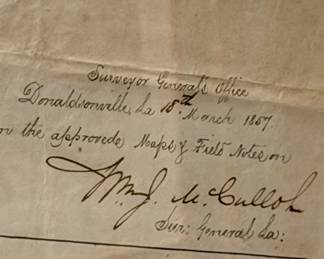 Surveyor General's Office
Donaldsonville, La 15th March 1857.
the approvede Maps & Field Notes on
Wm J. McCulloh
Sur: General La: